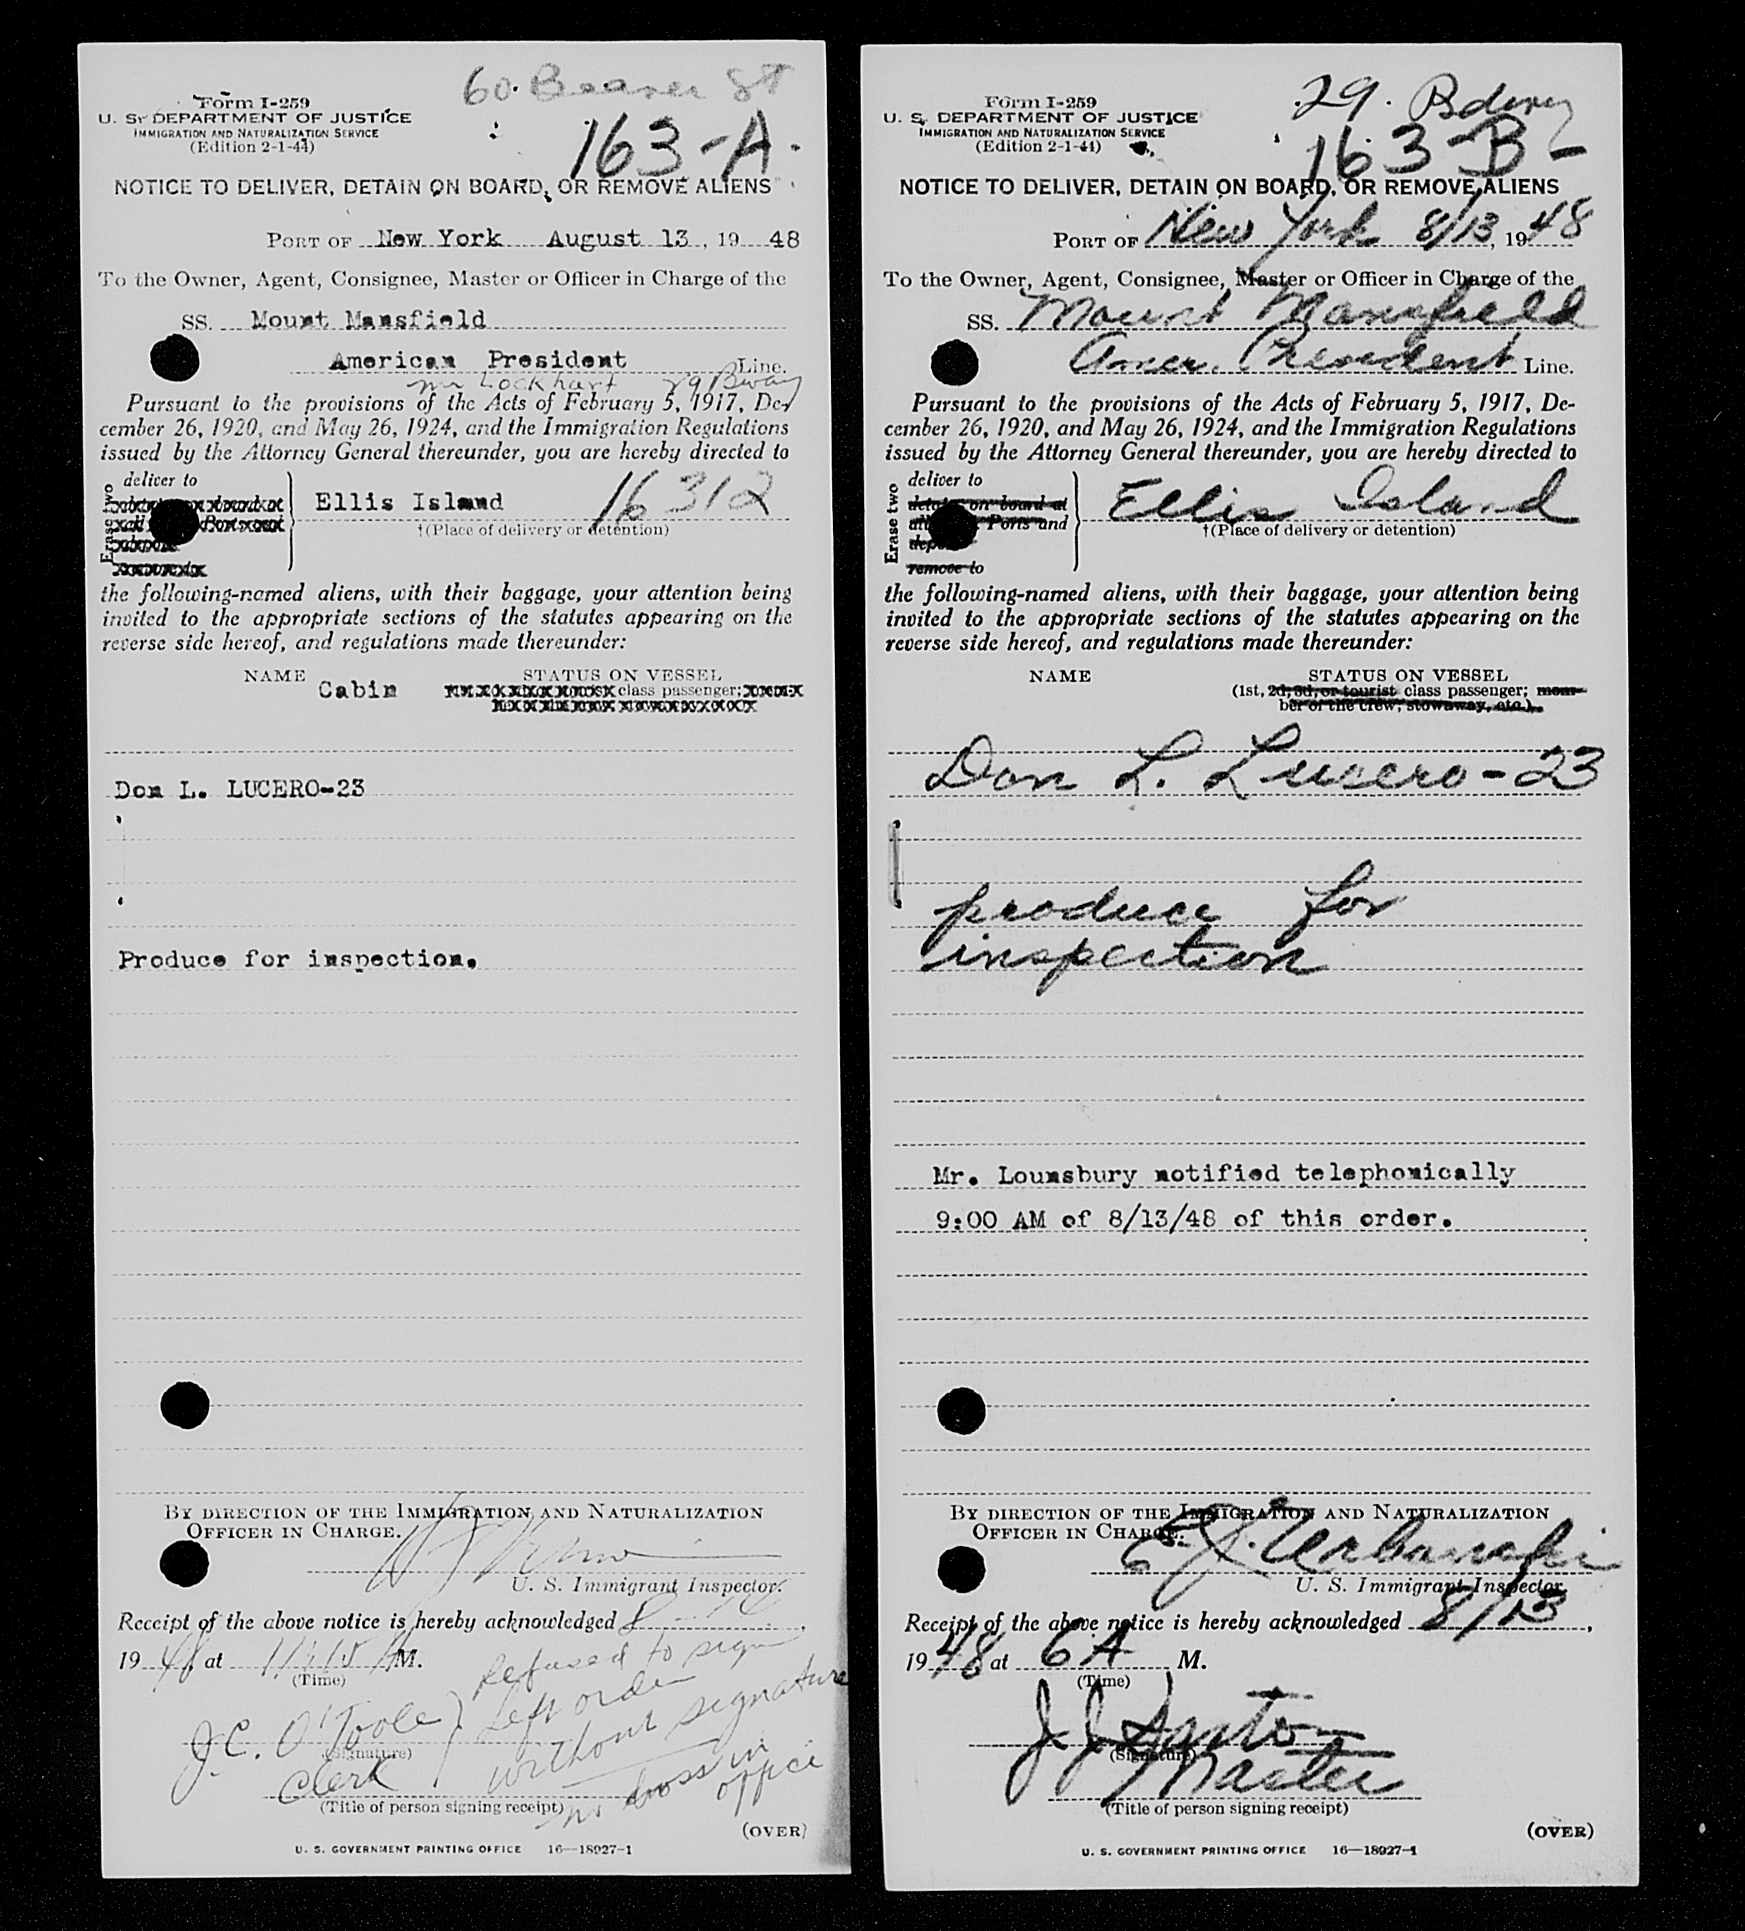 60. Beaver St
Form I-259
U. S. DEPARTMENT OF JUSTICE
IMMIGRATION AND NATURALIZATION SERVICE
(Edition 2-1-44)
163-A.
NOTICE TO DELIVER, DETAIN ON BOARD, OR REMOVE ALIENS
PORT OF New York August 13, 1948
To the Owner, Agent, Consignee, Master or Officer in Charge of the
SS. Mount Mansfield
American President Line.
Mr Lockhart 29 Bway
Pursuant to the provisions of the Acts of February 5, 1917, De-
cember 26, 1920, and May 26, 1924, and the Immigration Regulations
issued by the Attorney General thereunder, you are hereby directed to
Erase two
deliver to
Ellis Island 16312
†(Place of delivery or detention)
the following-named aliens, with their baggage, your attention being
invited to the appropriate sections of the statutes appearing on the
reverse side hereof, and regulations made thereunder:
NAME STATUS ON VESSEL
Cabin class passenger;
Don L. LUCERO-23
Produce for inspection.
BY DIRECTION OF THE IMMIGRATION AND NATURALIZATION
OFFICER IN CHARGE.
U. S. Immigrant Inspector.
Receipt of the above notice is hereby acknowledged 8
1948, at 11:15 A M.
(Time)
refused to sign
left order
without signature
no boss in
office
J.C. O'Toole
(Signature)
Clerk
(Title of person signing receipt)
(OVER)
U. S. GOVERNMENT PRINTING OFFICE 16—18927-1
29. Bdway
Form I-259
U. S. DEPARTMENT OF JUSTICE
IMMIGRATION AND NATURALIZATION SERVICE
(Edition 2-1-44)
163-B-
NOTICE TO DELIVER, DETAIN ON BOARD, OR REMOVE ALIENS
PORT OF New York 8/13, 1948
To the Owner, Agent, Consignee, Master or Officer in Charge of the
SS. Mount Mansfield
Amer. President Line.
Pursuant to the provisions of the Acts of February 5, 1917, De-
cember 26, 1920, and May 26, 1924, and the Immigration Regulations
issued by the Attorney General thereunder, you are hereby directed to
Erase two
deliver to
detain on board at
all Ports and
remove to
Ellis Island
†(Place of delivery or detention)
the following-named aliens, with their baggage, your attention being
invited to the appropriate sections of the statutes appearing on the
reverse side hereof, and regulations made thereunder:
NAME STATUS ON VESSEL
(1st, 2d, 3d, or tourist class passenger; mem-
ber of the crew, stowaway, etc.)
Don L. Lucero-23
produce for
inspection
Mr. Lounsbury notified telephonically
9:00 AM of 8/13/48 of this order.
BY DIRECTION OF THE IMMIGRATION AND NATURALIZATION
OFFICER IN CHARGE.
E. J. Urbanski
U. S. Immigrant Inspector.
Receipt of the above notice is hereby acknowledged 8/13,
1948 at 6 A M.
(Time)
J. J. Santo
(Signature)
Master
(Title of person signing receipt)
(OVER)
U. S. GOVERNMENT PRINTING OFFICE 16—18927-1